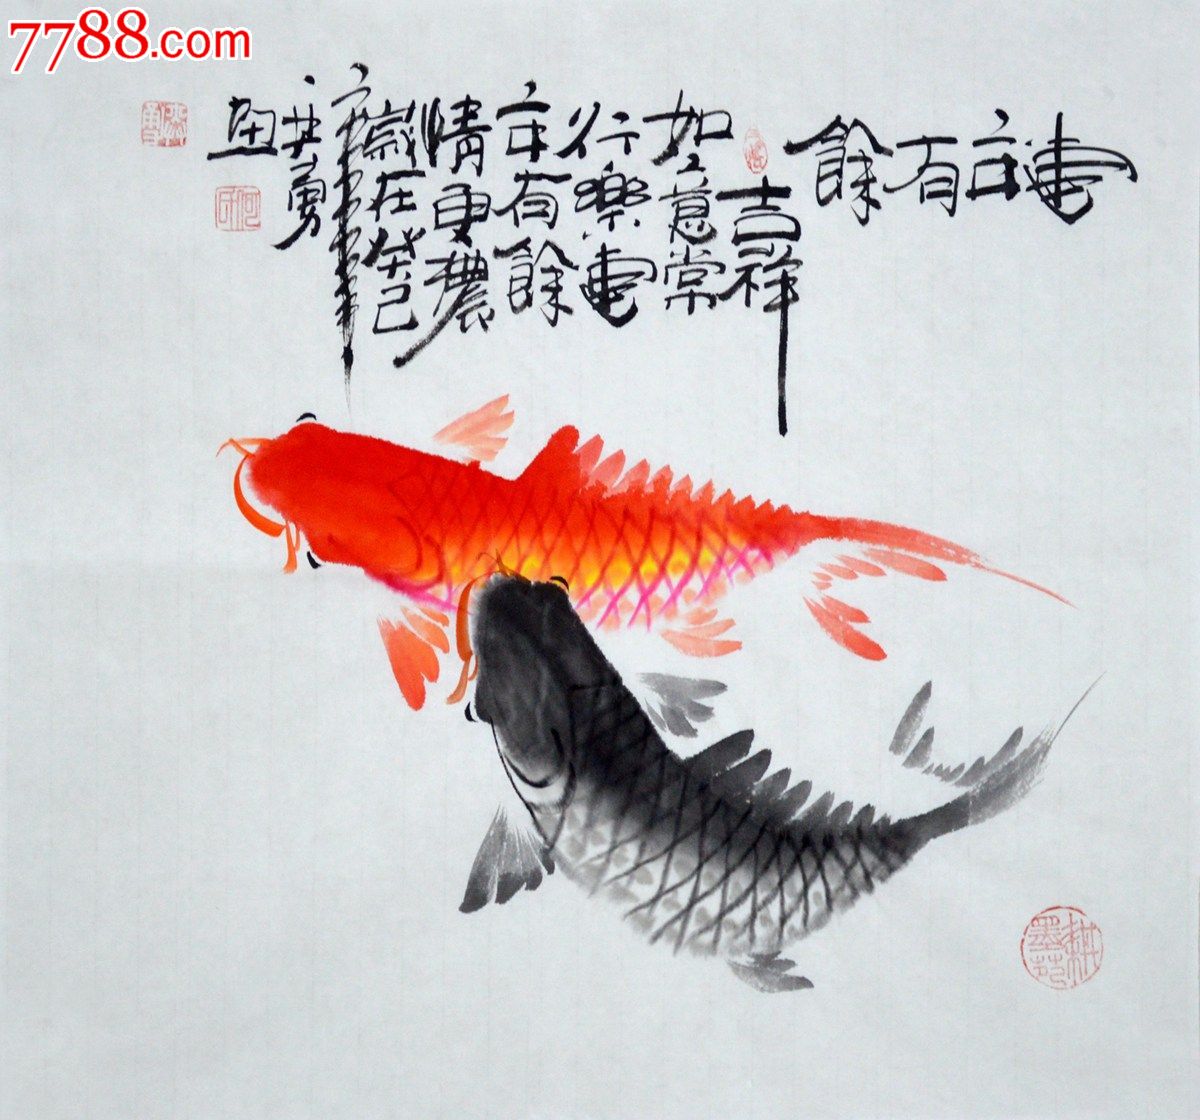 7788.com
連年有餘
吉祥
如意常
行樂連
年有餘
情更濃
歲在癸巳
洪勇
畫